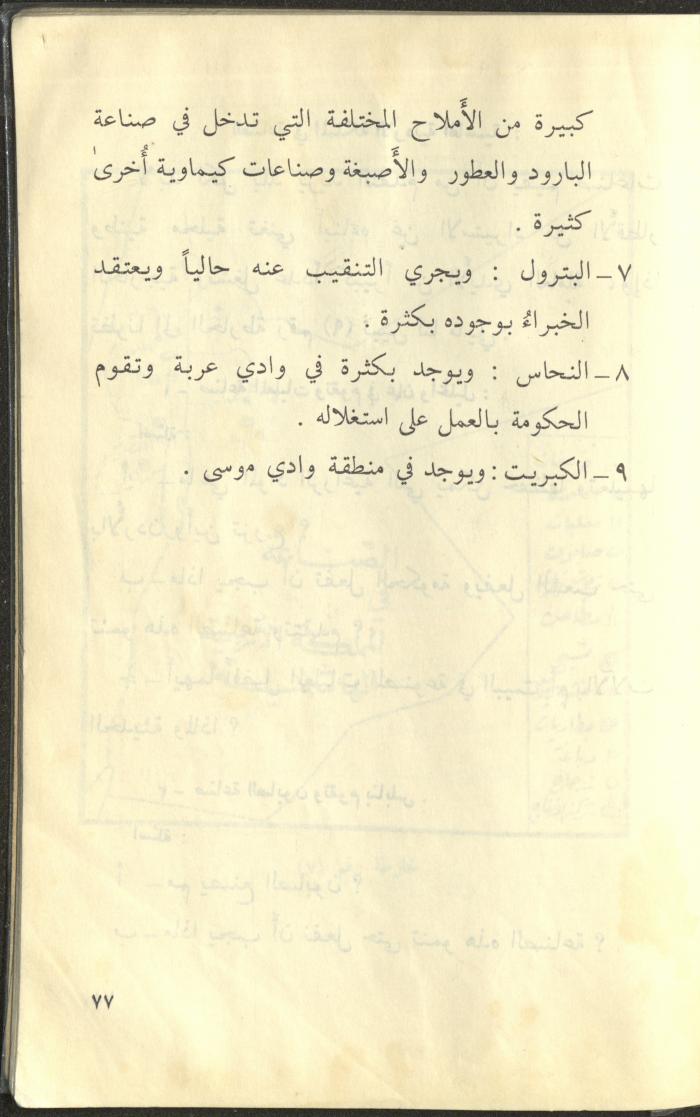 كبيرة من الأَملاح المختلفة التي تدخل في صناعة
البارود والعطور والأَصبغة وصناعات كيماوية أُخرىٰ
كثيرة .
٧ ـ البترول : ويجري التنقيب عنه حالياً ويعتقد
الخبراءُ بوجوده بكثرة .
٨ ـ النحاس : ويوجد بكثرة في وادي عربة وتقوم
الحكومة بالعمل على استغلاله .
٩ ـ الكبريت : ويوجد في منطقة وادي موسى .
٧٧